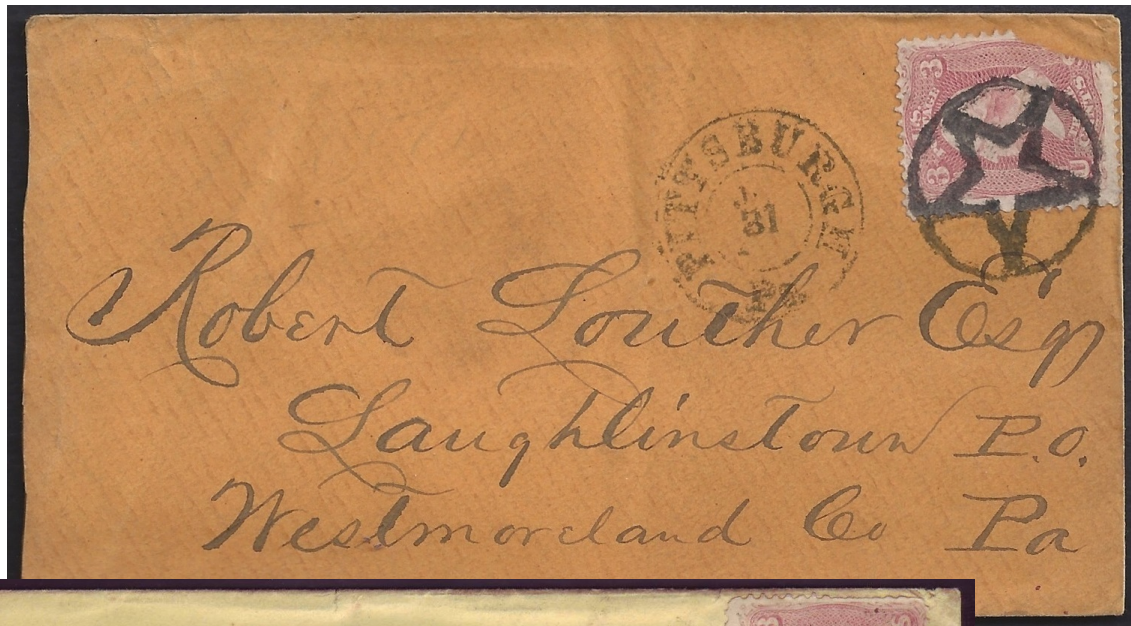 PITTSBURGH
31
PA
3
3
U
Robert Louther Esqr
Laughlinstown P.O.
Westmoreland Co Pa